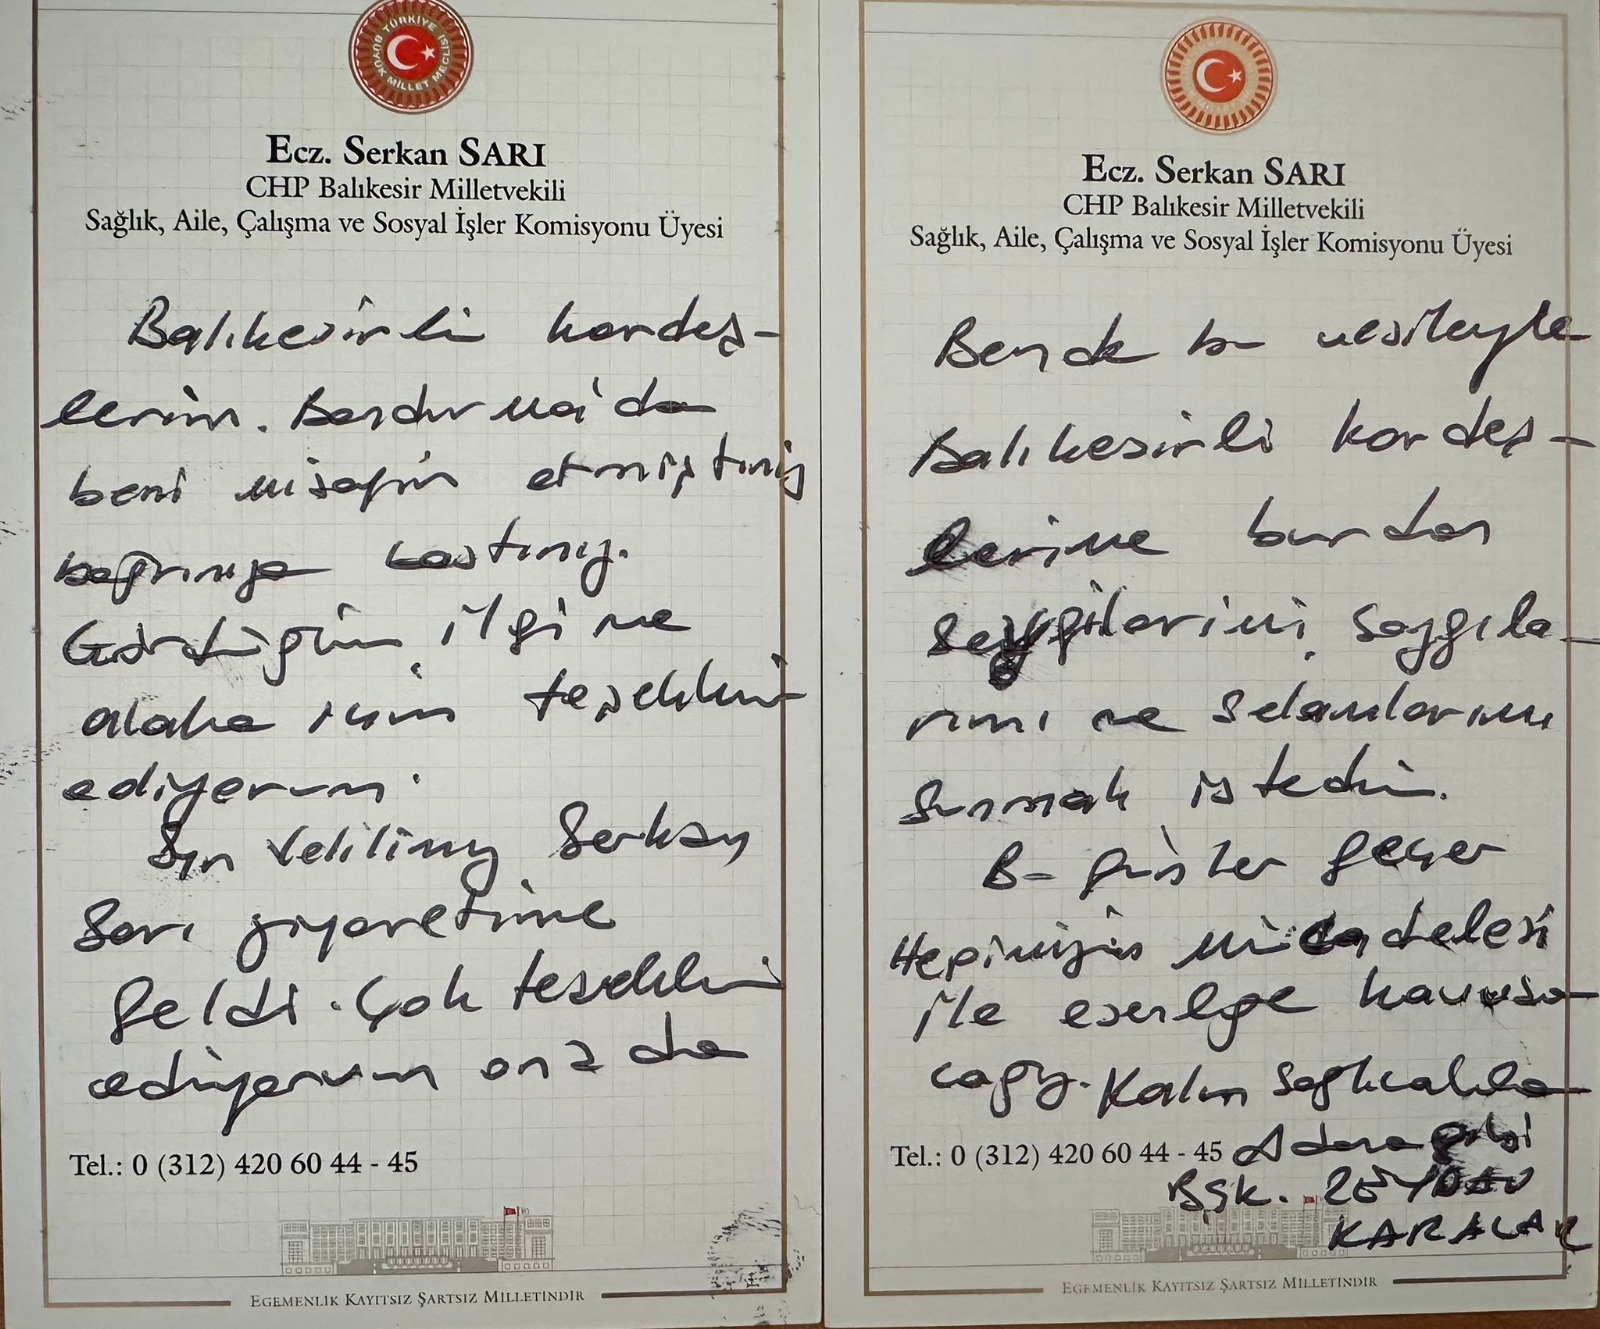 TÜRKİYE BÜYÜK MİLLET MECLİSİ
Ecz. Serkan SARI
CHP Balıkesir Milletvekili
Sağlık, Aile, Çalışma ve Sosyal İşler Komisyonu Üyesi
Balıkesirli kardeş-
lerim. Bandırma'da
beni misafir etmiştiniz
bağrınıza bastınız.
Gördüğüm ilgi ve
alaka için teşekkür
ediyorum.
Sn Vekilimiz Serkan
Sarı ziyaretime
geldi. Çok teşekkür
ediyorum ona da
Tel.: 0 (312) 420 60 44 - 45
EGEMENLİK KAYITSIZ ŞARTSIZ MİLLETİNDİR
Ecz. Serkan SARI
CHP Balıkesir Milletvekili
Sağlık, Aile, Çalışma ve Sosyal İşler Komisyonu Üyesi
Bende bu vesileyle
Balıkesirli kardeş-
lerime burdan
sevgilerimi, saygıla-
rımı ve selamlarımı
sunmak istedim.
Bu günler geçer
Hepimizin mücadelesi
ile kavuşa-
cağız. Kalın sağlıcakla
Tel.: 0 (312) 420 60 44 - 45 Adana
Bşk. ZEYDAN
KARALAR
EGEMENLİK KAYITSIZ ŞARTSIZ MİLLETİNDİR